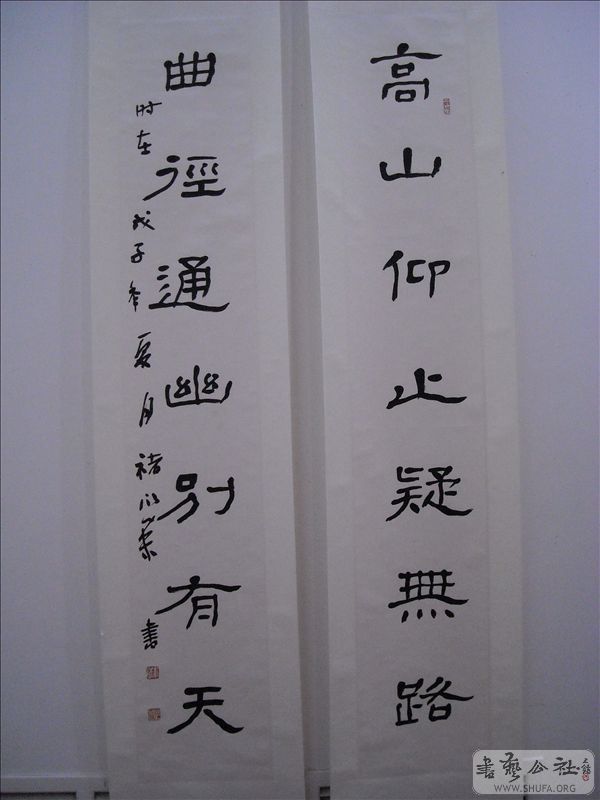 高山仰止疑無路
曲徑通幽別有天
时在戊子年夏月褚
書
書藝公社
WWW.SHUFA.ORG